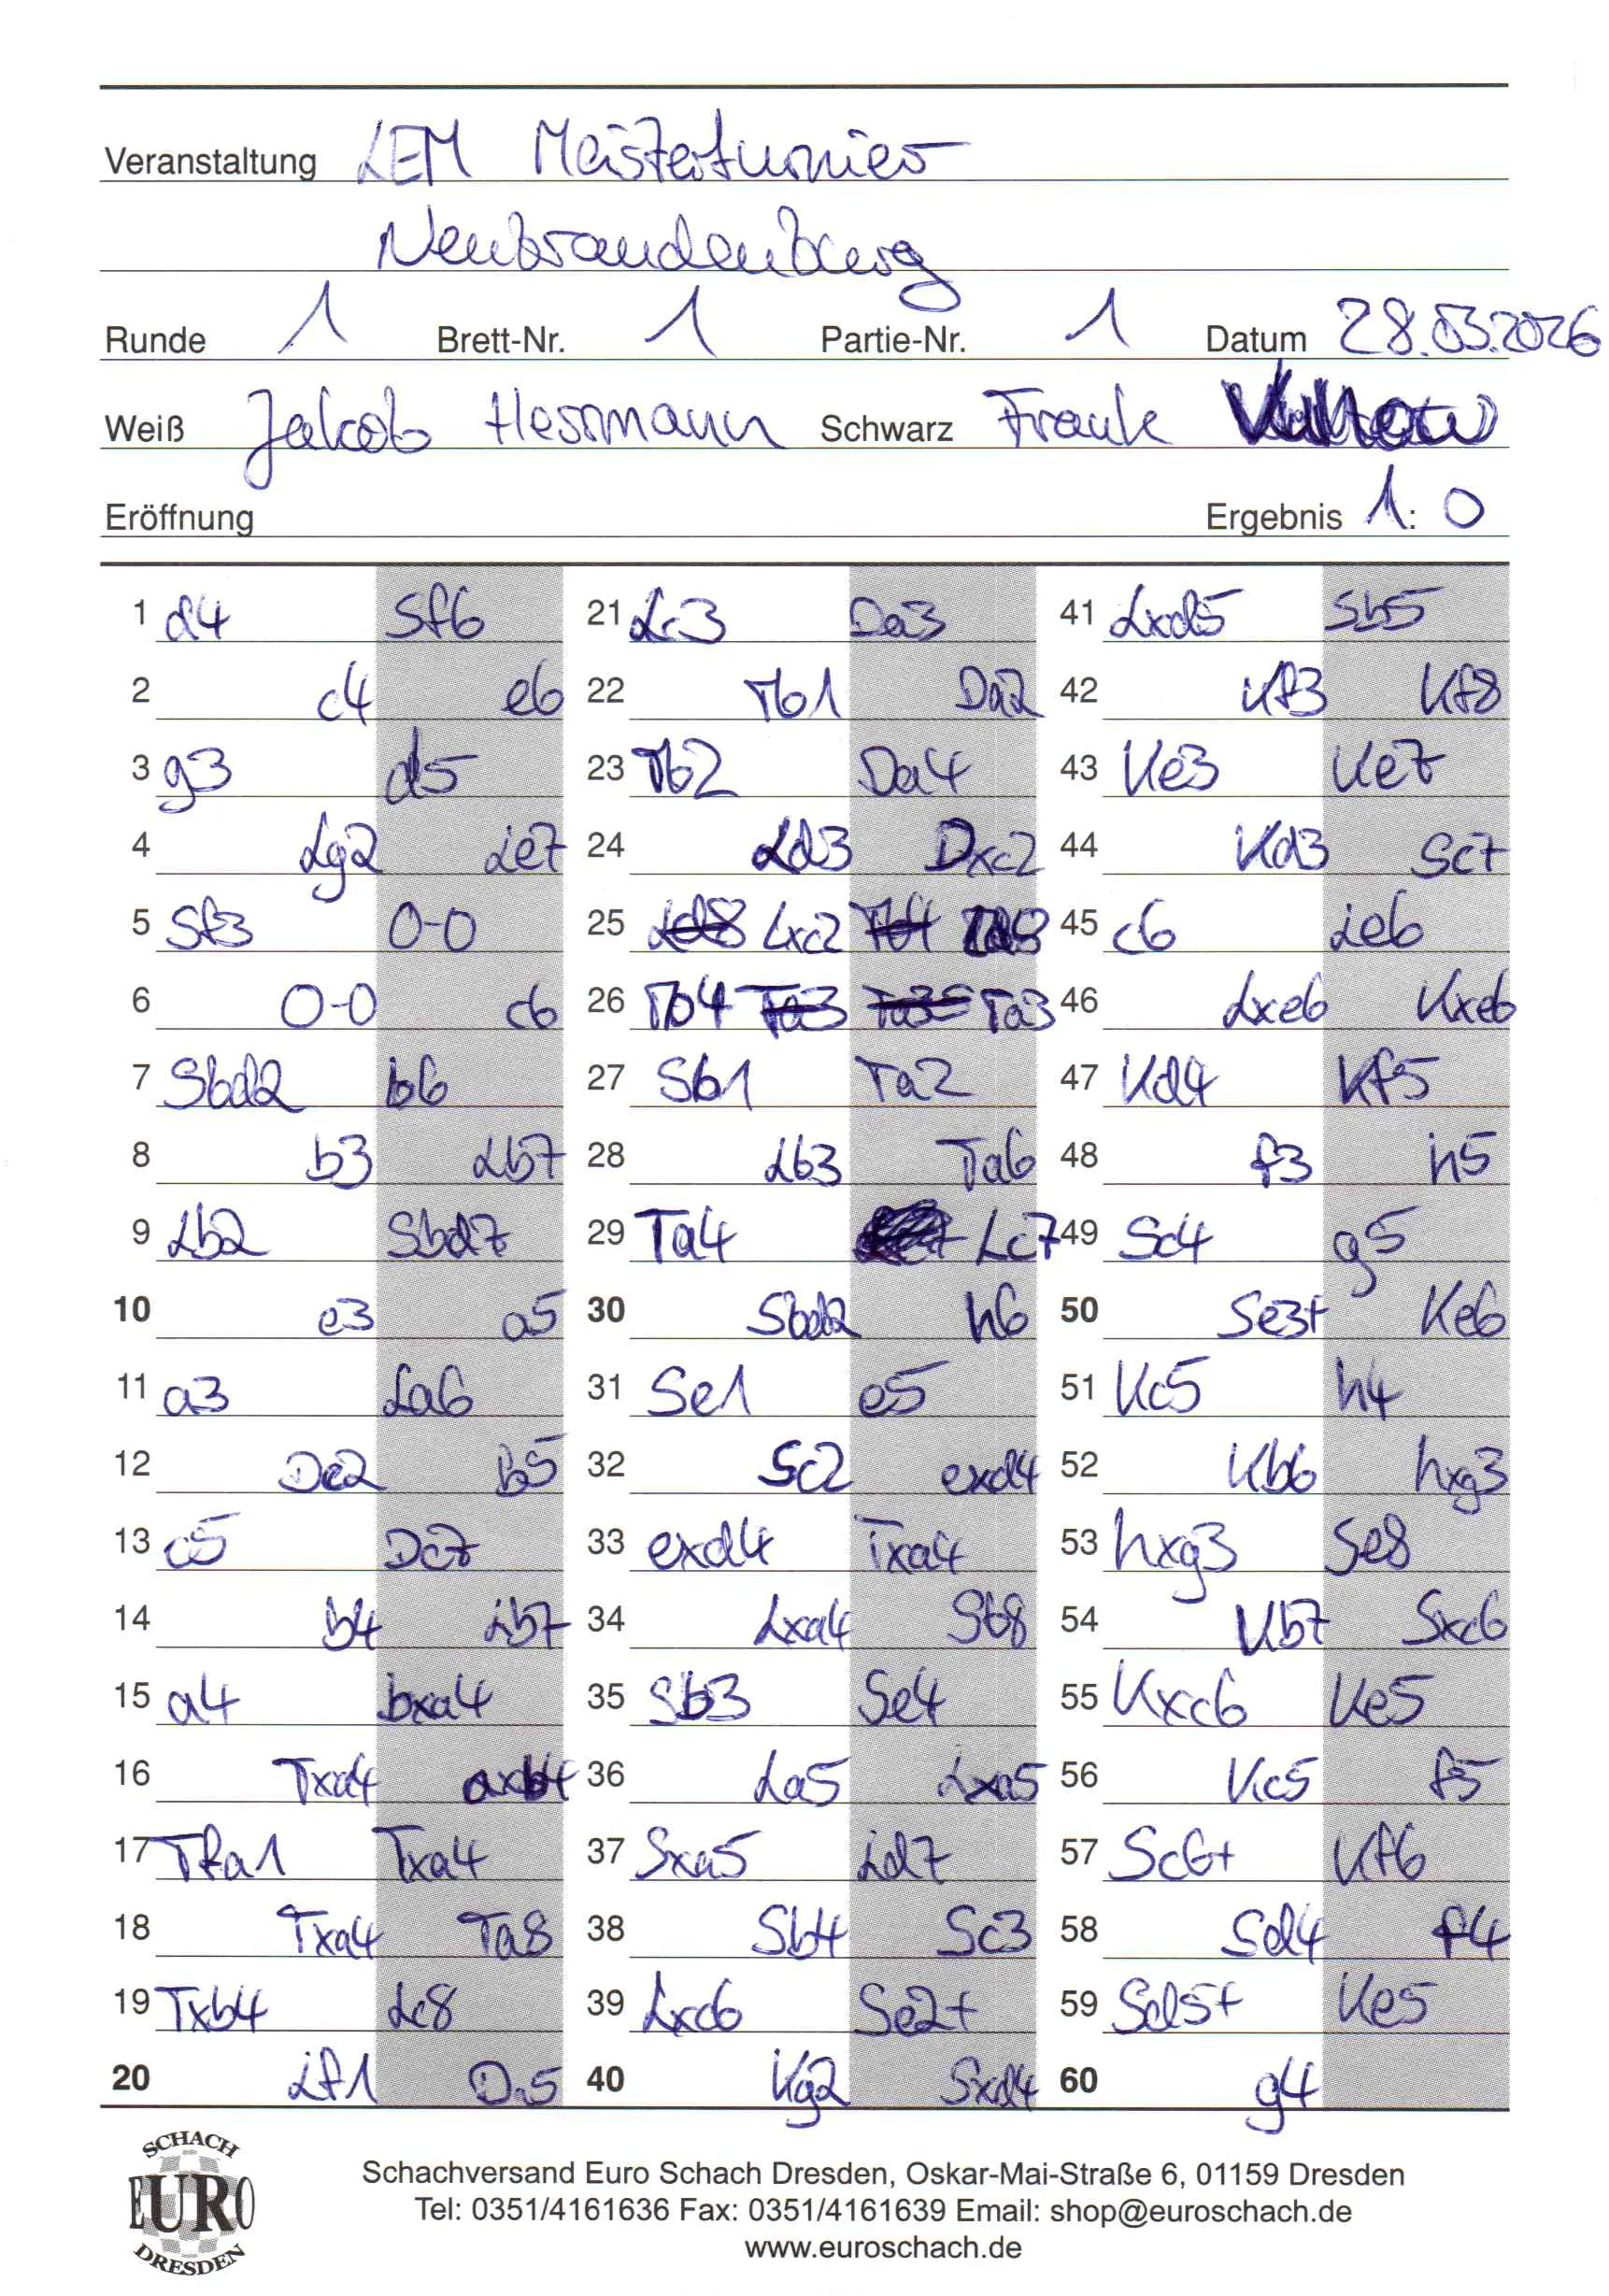 Veranstaltung LEM Meisterturnier
Neubrandenburg
Runde 1 Brett-Nr. 1 Partie-Nr. 1 Datum 28.03.2026
Weiß Jakob Herrmann Schwarz Frank
Eröffnung Ergebnis 1 : 0
1 d4 Sf6 21 Lc3 Da3 41 Lxd5 Sb5
2 c4 e6 22 Tb1 Da2 42 Kf3 Kf8
3 g3 d5 23 Tb2 Da4 43 Ke3 Ke7
4 Lg2 Le7 24 Ld3 Dxc2 44 Kd3 Sc7
5 Sf3 0-0 25 Lxc2 45 c6 Le6
6 0-0 c6 26 Tb4 Ta3 46 Lxe6 Kxe6
7 Sbd2 b6 27 Sb1 Ta2 47 Kd4 Kf5
8 b3 Lb7 28 Lb3 Ta6 48 f3 h5
9 Lb2 Sbd7 29 Ta4 Lc7 49 Sc4 g5
10 e3 a5 30 Sbd2 h6 50 Se3+ Ke6
11 a3 La6 31 Se1 e5 51 Kc5 h4
12 Dc2 b5 32 Sc2 exd4 52 Kb6 hxg3
13 c5 Dc7 33 exd4 Txa4 53 hxg3 Se8
14 b4 Lb7 34 Lxa4 Sb8 54 Kb7 Sxc6
15 a4 bxa4 35 Sb3 Se4 55 Kxc6 Ke5
16 Txa4 axb4 36 La5 Lxa5 56 Kc5 f5
17 Tfa1 Txa4 37 Sxa5 Ld7 57 Sc6+ Kf6
18 Txa4 Ta8 38 Sb4 Sc3 58 Sd4 f4
19 Txb4 Lc8 39 Lxc6 Se2+ 59 Sd5+ Ke5
20 Lf1 Da5 40 Kg2 Sxd4 60 g4
SCHACH
EURO
DRESDEN
Schachversand Euro Schach Dresden, Oskar-Mai-Straße 6, 01159 Dresden
Tel: 0351/4161636 Fax: 0351/4161639 Email: shop@euroschach.de
www.euroschach.de